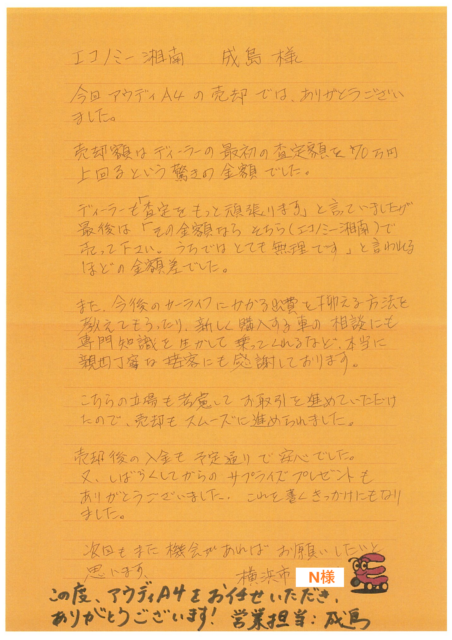 エコノミー湘南　成島様
今回アウディA4の売却では、ありがとうござい
ました。
売却額はディーラーの最初の査定額を70万円
上回るという驚きの金額でした。
ディーラーも「査定をもっと頑張ります」と言っていましたが
最後は「その金額なら そちら(エコノミー湘南)で
売って下さい。うちではとても無理です」と言われる
ほどの金額差でした。
また、今後のカーライフにかかる出費を抑える方法を
教えてもらったり、新しく購入する車の相談にも
専門知識を生かして乗ってくれるなど、本当に
親切丁寧な接客にも感謝しております。
こちらの立場も考慮して お取引を進めていただけ
たので、売却もスムーズに進められました。
売却後の入金も予定通りで安心でした。
又、しばらくしてからの サプライズプレゼントも
ありがとうございました。これを書くきっかけにもなり
ました。
次回もまた機会があれば お願いしたいと
思います。
横浜市 N様
この度、アウディA4をお任せいただき、
ありがとうございます! 営業担当:成島